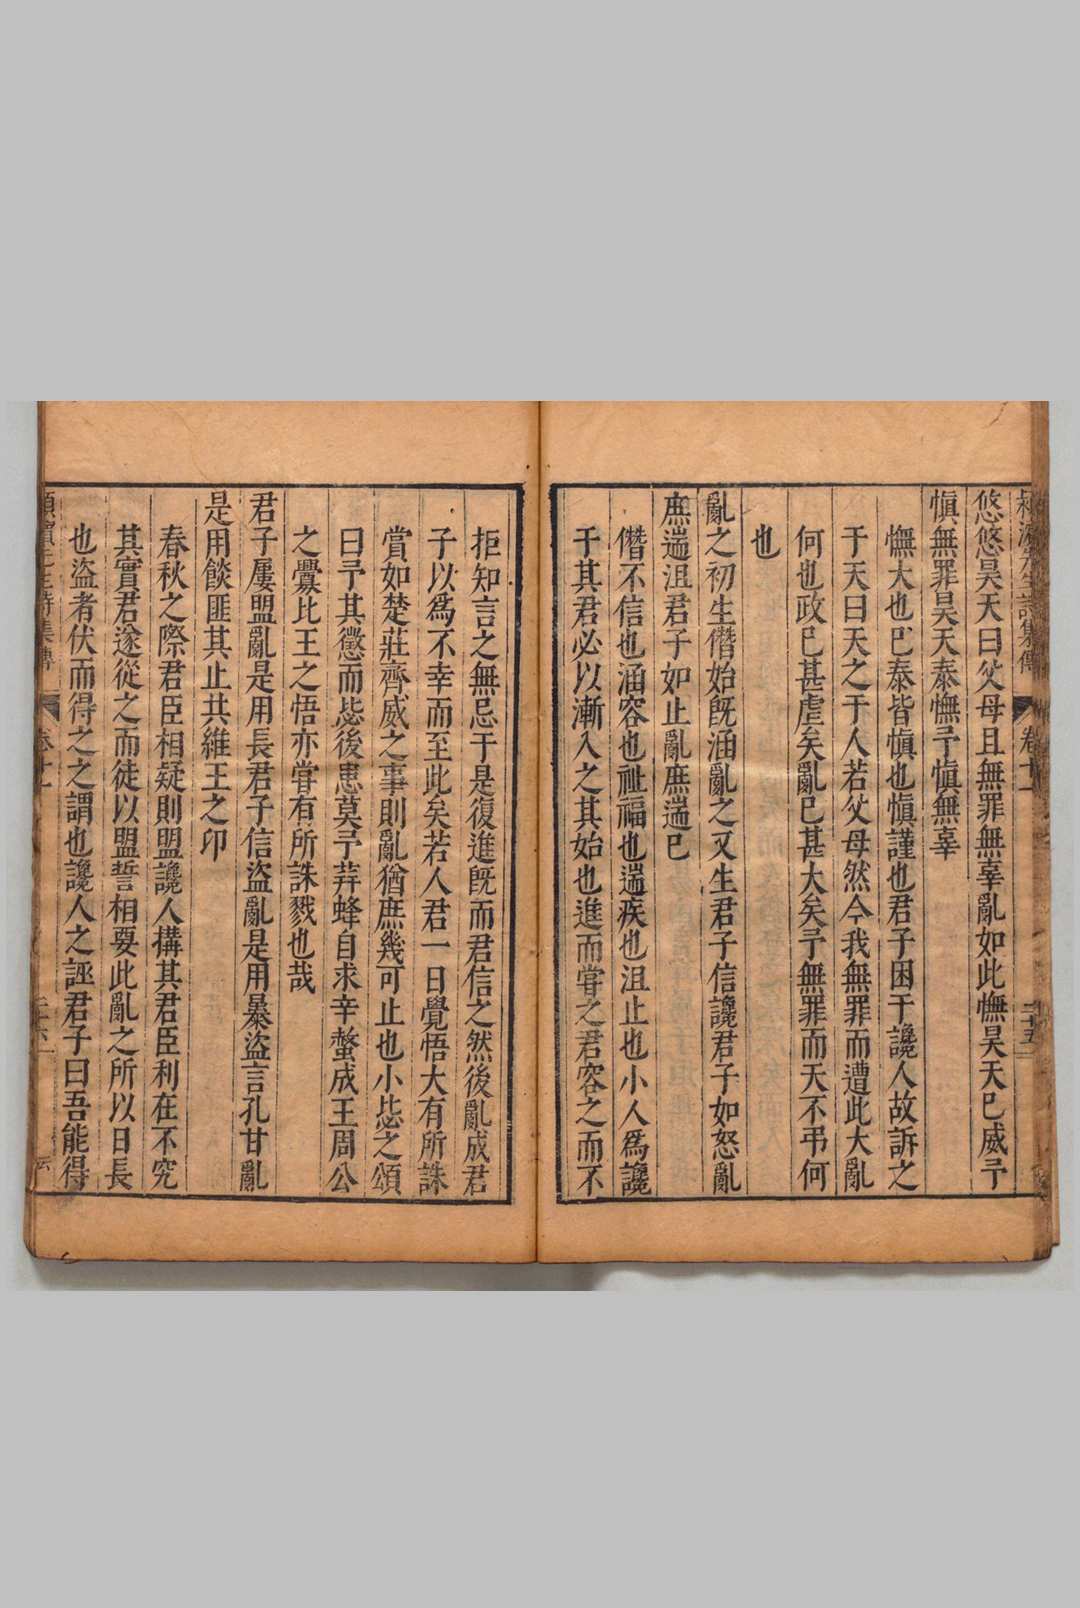 悠悠昊天曰父母且無罪無辜亂如此憮昊天已威予
慎無罪昊天泰憮予慎無辜
憮大也已泰皆慎也慎謹也君子困于讒人故訴之
于天曰天之于人若父母然今我無罪而遭此大亂
何也政已甚虐矣亂已甚大矣予無罪而天不弔何
也
亂之初生僭始旣涵亂之又生君子信讒君子如怒亂
庶遄沮君子如止亂庶遄已
僭不信也涵容也祉福也遄疾也沮止也小人爲讒
于其君必以漸入之其始也進而嘗之君容之而不
拒知言之無忌于是復進旣而君信之然後亂成君
子以爲不幸而至此矣若人君一日覺悟大有所誅
嘗如楚莊齊威之事則亂猶庶幾可止也小毖之頌
曰予其懲而毖後患莫予荓蜂自求辛螫成王周公
之釁比王之悟亦嘗有所誅戮也哉
君子屢盟亂是用長君子信盜亂是用暴盜言孔甘亂
是用餤匪其止共維王之卭
春秋之際君臣相疑則盟讒人搆其君臣利在不究
其實君遂從之而徒以盟誓相要此亂之所以日長
也盜者伏而得之之謂也讒人之誣君子曰吾能得
潁濱先生詩集傳 卷十一 二十六